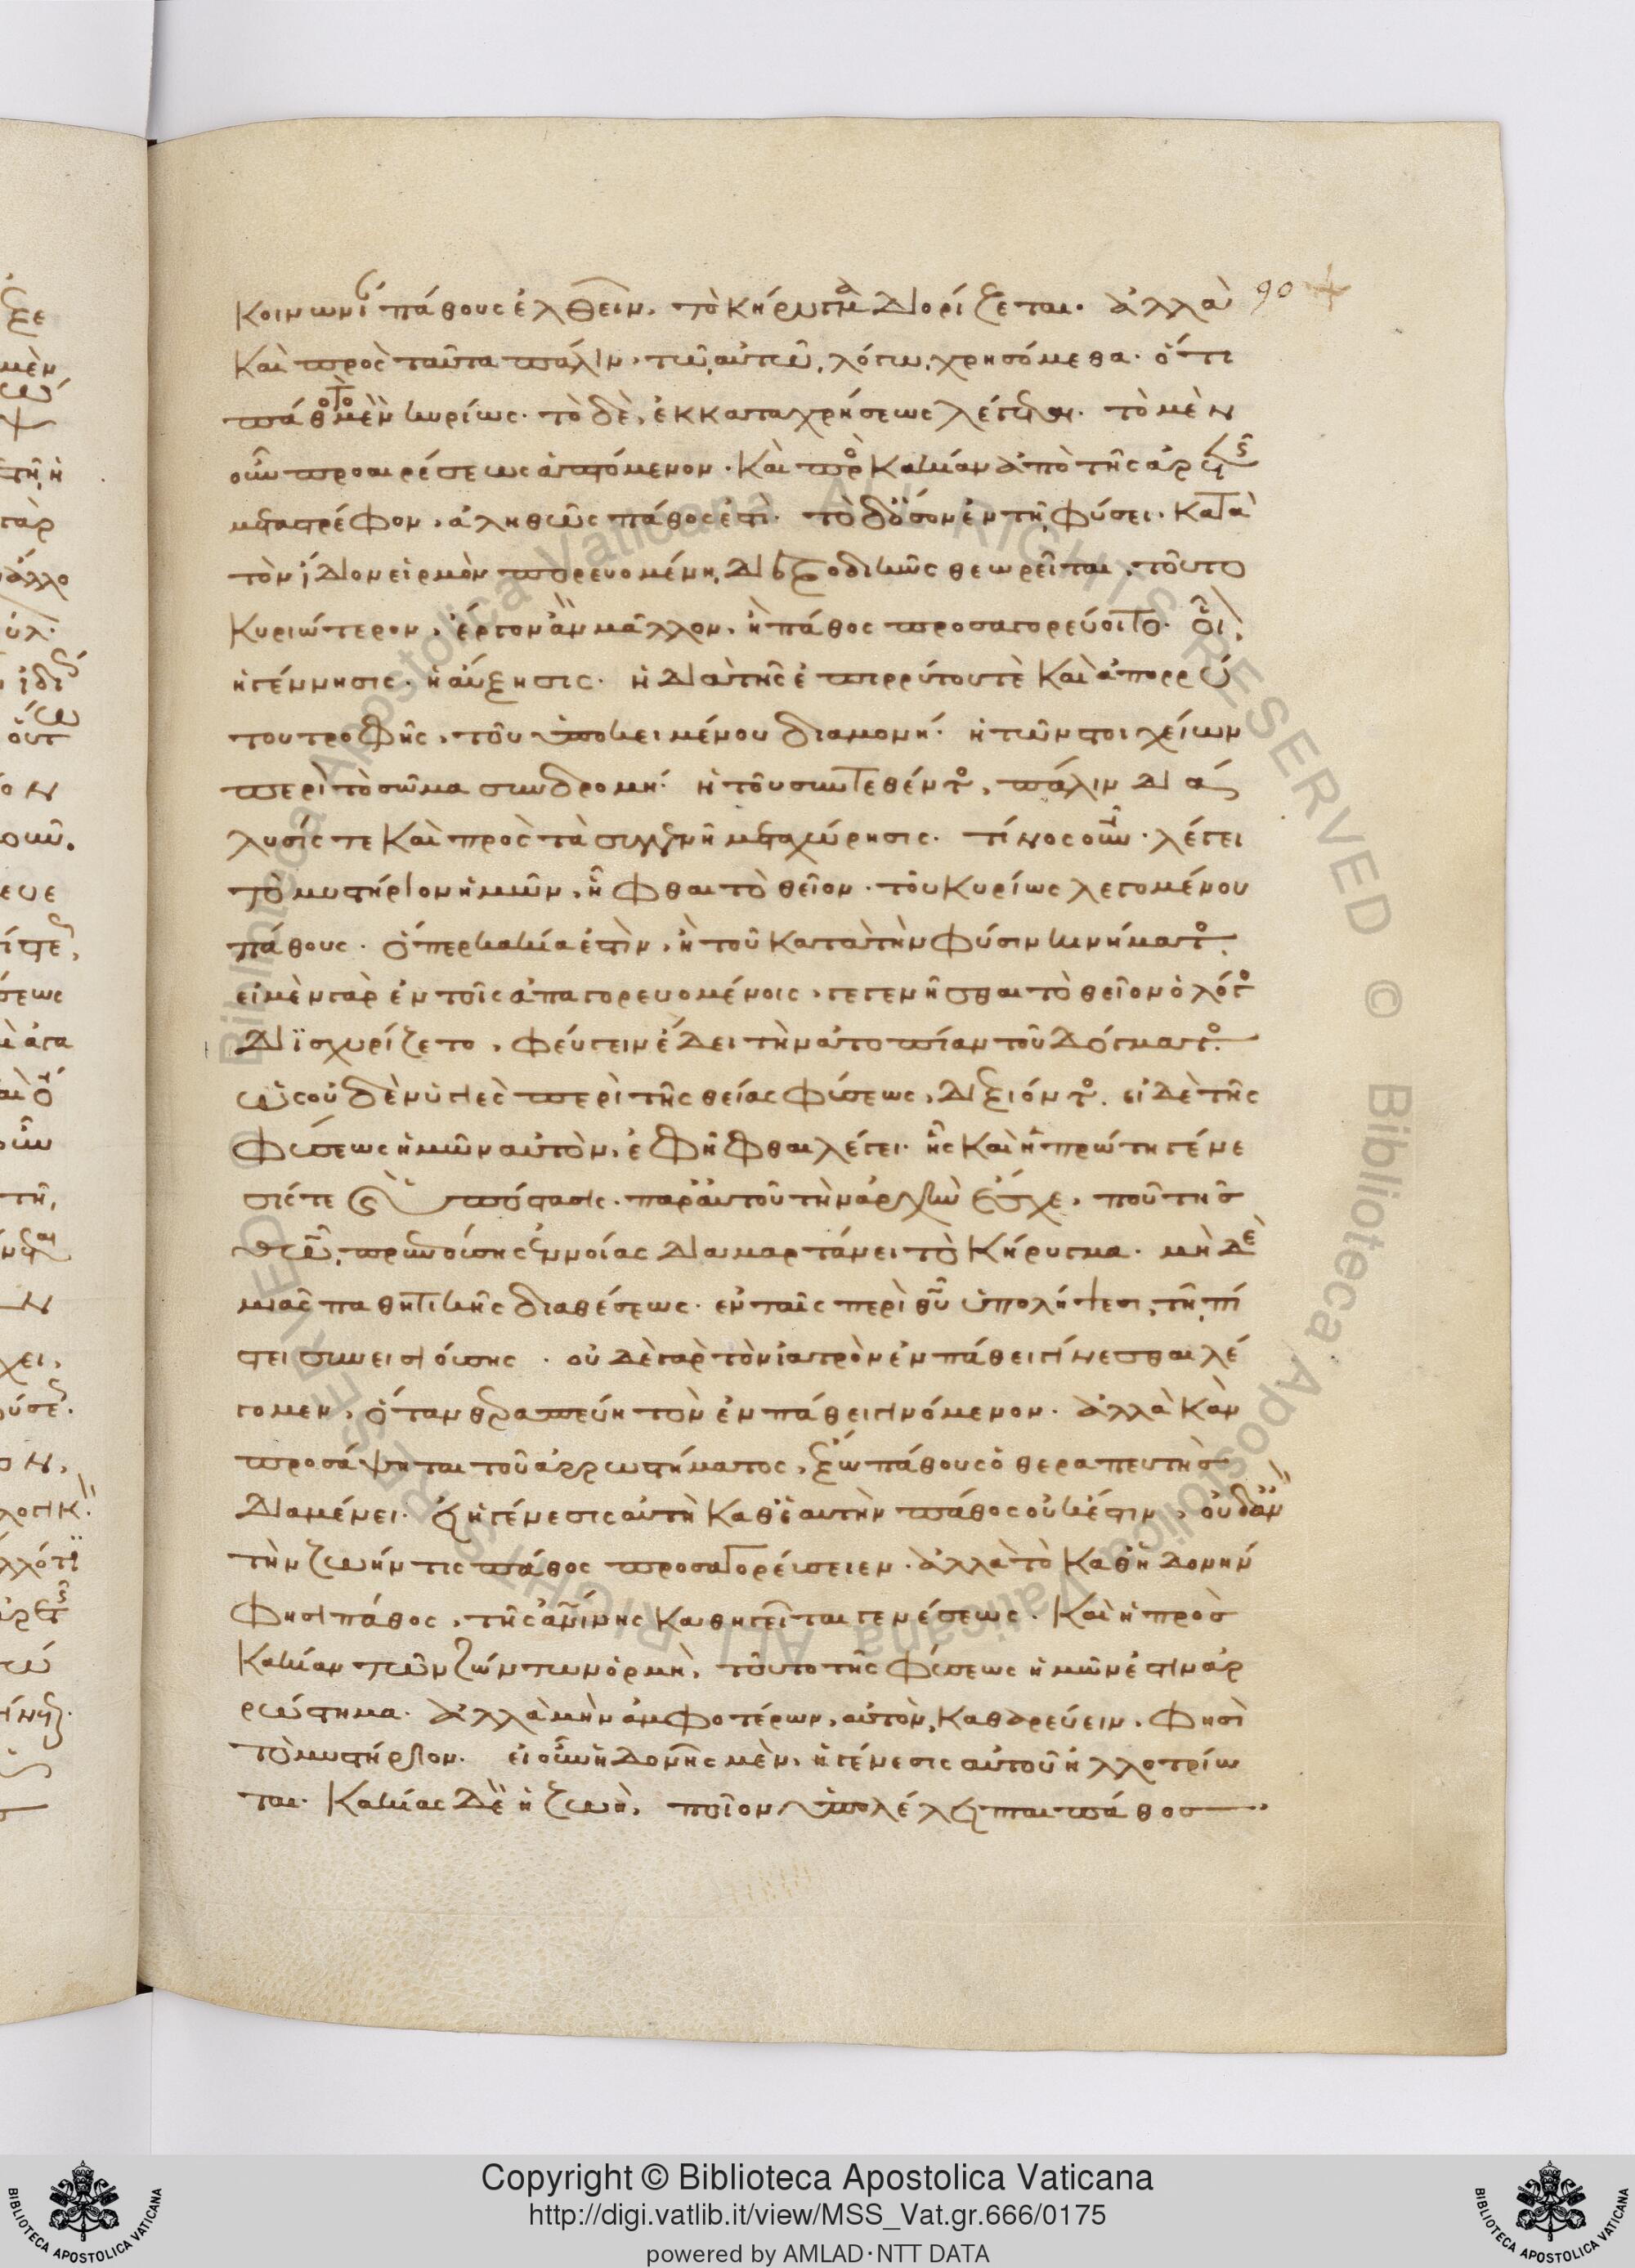 κοινωνί πάθους ἐλθεῖν, τὸ κήρυγμα διορίζεται. ἀλλὰ 90
καὶ πρὸς ταῦτα πάλιν, τῷ αὐτῷ λόγῳ χρησόμεθα. ὅτι
πάθος τὸ μὲν κυρίως. τὸ δὲ, ἐκ καταχρήσεως λέγεται. τὸ μὲν
οὖν προαιρέσεως ἁπτόμενον. καὶ πρὸς κακίαν ἀπὸ τῆς ἀρετῆς
μεταστρέφον, ἀληθῶς πάθος ἐστί. τὸ δ' ὅσον ἐν τῇ φύσει. κατὰ
τὸν ἴδιον εἱρμὸν πορευομένῃ, διεξοδικῶς θεωρεῖται, τοῦτο
κυριώτερον, ἔργον ἂν μᾶλλον, ἢ πάθος προσαγορεύοιτο. οἷον,
ἡ γέννησις. ἡ αὔξησις. ἡ διὰ τῆς ἐπιρρύτου τὲ καὶ ἀπορρύ
του τροφῆς, τοῦ ὑποκειμένου διαμονή. ἡ τῶν στοιχείων
περὶ τὸ σῶμα συνδρομή. ἡ τοῦ συντεθέντος, πάλιν διά
λυσίς τε καὶ πρὸς τὰ συγγενῆ μεταχώρησις. τίνος οὖν λέγει
τὸ μυστήριον ἡμῶν, ἧφθαι τὸ θεῖον. τοῦ κυρίως λεγομένου
πάθους. ὅπερ κακία ἐστὶν, ἢ τοῦ κατὰ τὴν φύσιν κινήματος.
εἰ μὲν γὰρ ἐν τοῖς ἀπαγορευομένοις, γεγενῆσθαι τὸ θεῖον ὁ λόγος
διϊσχυρίζετο, φεύγειν ἔδει τὴν ἀτοπίαν τοῦ δόγματος.
ὡς οὐδὲν ὑγιὲς περὶ τῆς θείας φύσεως, διεξιόντος. εἰ δὲ τῆς
φύσεως ἡμῶν αὐτὸν, ἐφῆφθαι λέγει. ἧς καὶ ἡ πρώτη γένε
σίς τε καὶ ὑπόστασις. παρ' αὐτοῦ τὴν ἀρχὴν ἔσχε, ποῦ τῆς
θεῷ πρεπούσης ἐννοίας διαμαρτάνει τὸ κήρυγμα. μηδε
μιᾶς παθητικῆς διαθέσεως. ἐν ταῖς περὶ θῦ ὑπολήψεσι, τῇ πί
στει συνεισιούσης. οὐδὲ γὰρ τὸν ἰατρὸν ἐν πάθει γίνεσθαι λέ
γομεν, ὅταν θεραπεύῃ τὸν ἐν πάθει γινόμενον. ἀλλὰ κἂν
προσάψηται τοῦ ἀρρωστήματος, ἔξω πάθους ὁ θεραπευτὴς
διαμένει. εἰ ἡ γένεσις αὐτὴ καθ' ἑαυτὴν πάθος οὐκ ἔστιν, οὐδ' ἂν
τὴν ζωήν τις πάθος προσαγορεύσειεν. ἀλλὰ τὸ καθ' ἡδονήν
φησι πάθος, τῆς ἀνθρωπίνης καθηγεῖται γενέσεως. καὶ ἡ πρὸς
κακίαν τῶν ζώντων ὁρμὴ, τοῦτο τῆς φύσεως ἡμῶν ἐστιν ἀρ
ρώστημα. ἀλλὰ μὴν ἀμφοτέρων, αὐτὸν καθαρεύειν, φησὶ
τὸ μυστήριον. εἰ οὖν ἡδονῆς μὲν, ἡ γένεσις αὐτοῦ ἠλλοτρίω
ται. κακίας δὲ ἡ ζωὴ, ποῖον ὑπολέλειπται πάθος
Copyright © Biblioteca Apostolica Vaticana
http://digi.vatlib.it/view/MSS_Vat.gr.666/0175
powered by AMLAD·NTT DATA